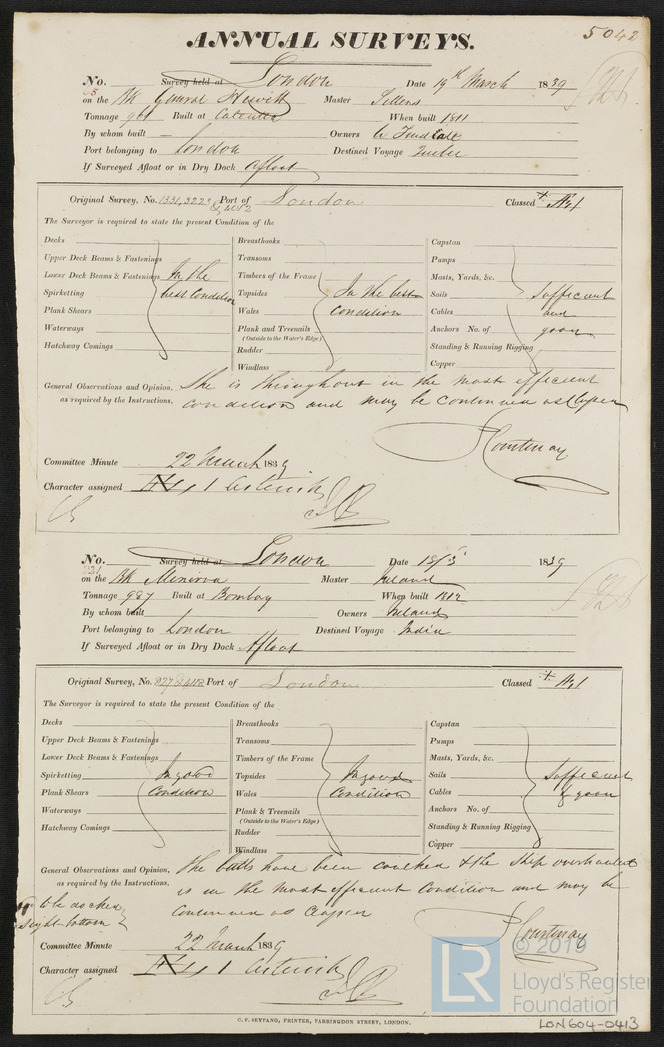 5042
ANNUAL SURVEYS.
No. Survey held at London Date 19th March 1839
on the Bk General Hewitt Master
Tonnage 961 Built at Calcutta When built 1811
By whom built — Owners
Port belonging to London Destined Voyage
If Surveyed Afloat or in Dry Dock Afloat
Original Survey, No. 1331, 3223 Port of London Classed A 1
The Surveyor is required to state the present Condition of the
Decks Breasthooks Capstan
Upper Deck Beams & Fastenings Transoms Pumps
Lower Deck Beams & Fastenings In the Timbers of the Frame Masts, Yards, &c.
Spirketting best Condition Topsides In the best Sails Sufficient
Plank Shears Wales Condition Cables and
Waterways Plank and Treenails Anchors No. of good
(Outside to the Water's Edge)
Hatchway Comings Rudder Standing & Running Rigging
Windlass Copper
General Observations and Opinion, She is throughout in the most efficient
as required by the Instructions. condition and may be continued as
Courtenay
Committee Minute 22 March 1839
Character assigned 1 asterisk
No. Survey held at London Date 1839
221
on the Bk Minerva Master Ireland
Tonnage 987 Built at Bombay When built 1812
By whom built Owners Ireland
Port belonging to London Destined Voyage India
If Surveyed Afloat or in Dry Dock Afloat
Original Survey, No. Port of London Classed A 1
The Surveyor is required to state the present Condition of the
Decks Breasthooks Capstan
Upper Deck Beams & Fastenings Transoms Pumps
Lower Deck Beams & Fastenings Timbers of the Frame Masts, Yards, &c.
Spirketting In good Topsides In good Sails Sufficient
Plank Shears Condition Wales Condition Cables & good
Waterways Plank & Treenails Anchors No. of
(Outside to the Water's Edge)
Hatchway Comings Rudder Standing & Running Rigging
Windlass Copper
General Observations and Opinion, The butts have been caulked & the Ship overhauled
as required by the Instructions. is in the most efficient Condition and may be
to be docked continued as
sight bottom
Courtenay
Committee Minute 22 March 1839
Character assigned 1 asterisk
C. F. SEYFANG, PRINTER, FARRINGDON STREET, LONDON.
© 2019
LR Lloyd's Register
Foundation
LON604-0413